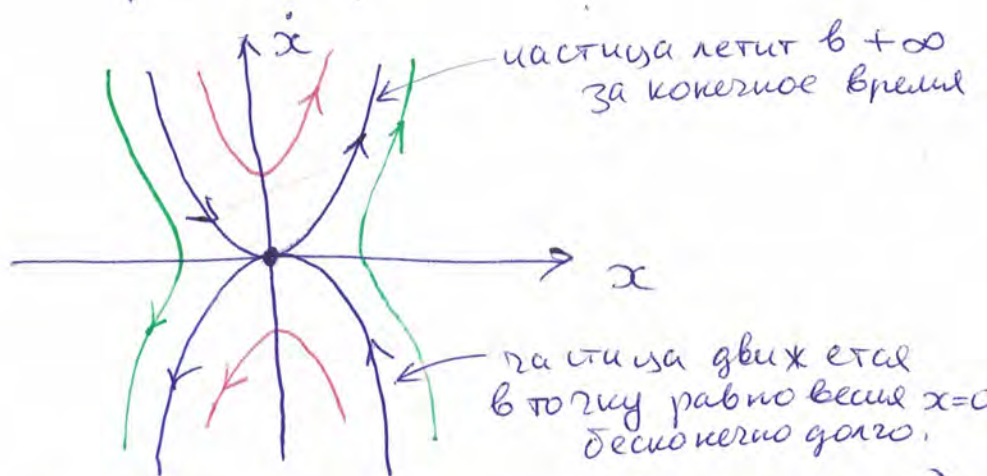 ẋ
частица летит в +∞
за конечное время
x
частица движется
в точку равновесия x=0
бесконечно долго.